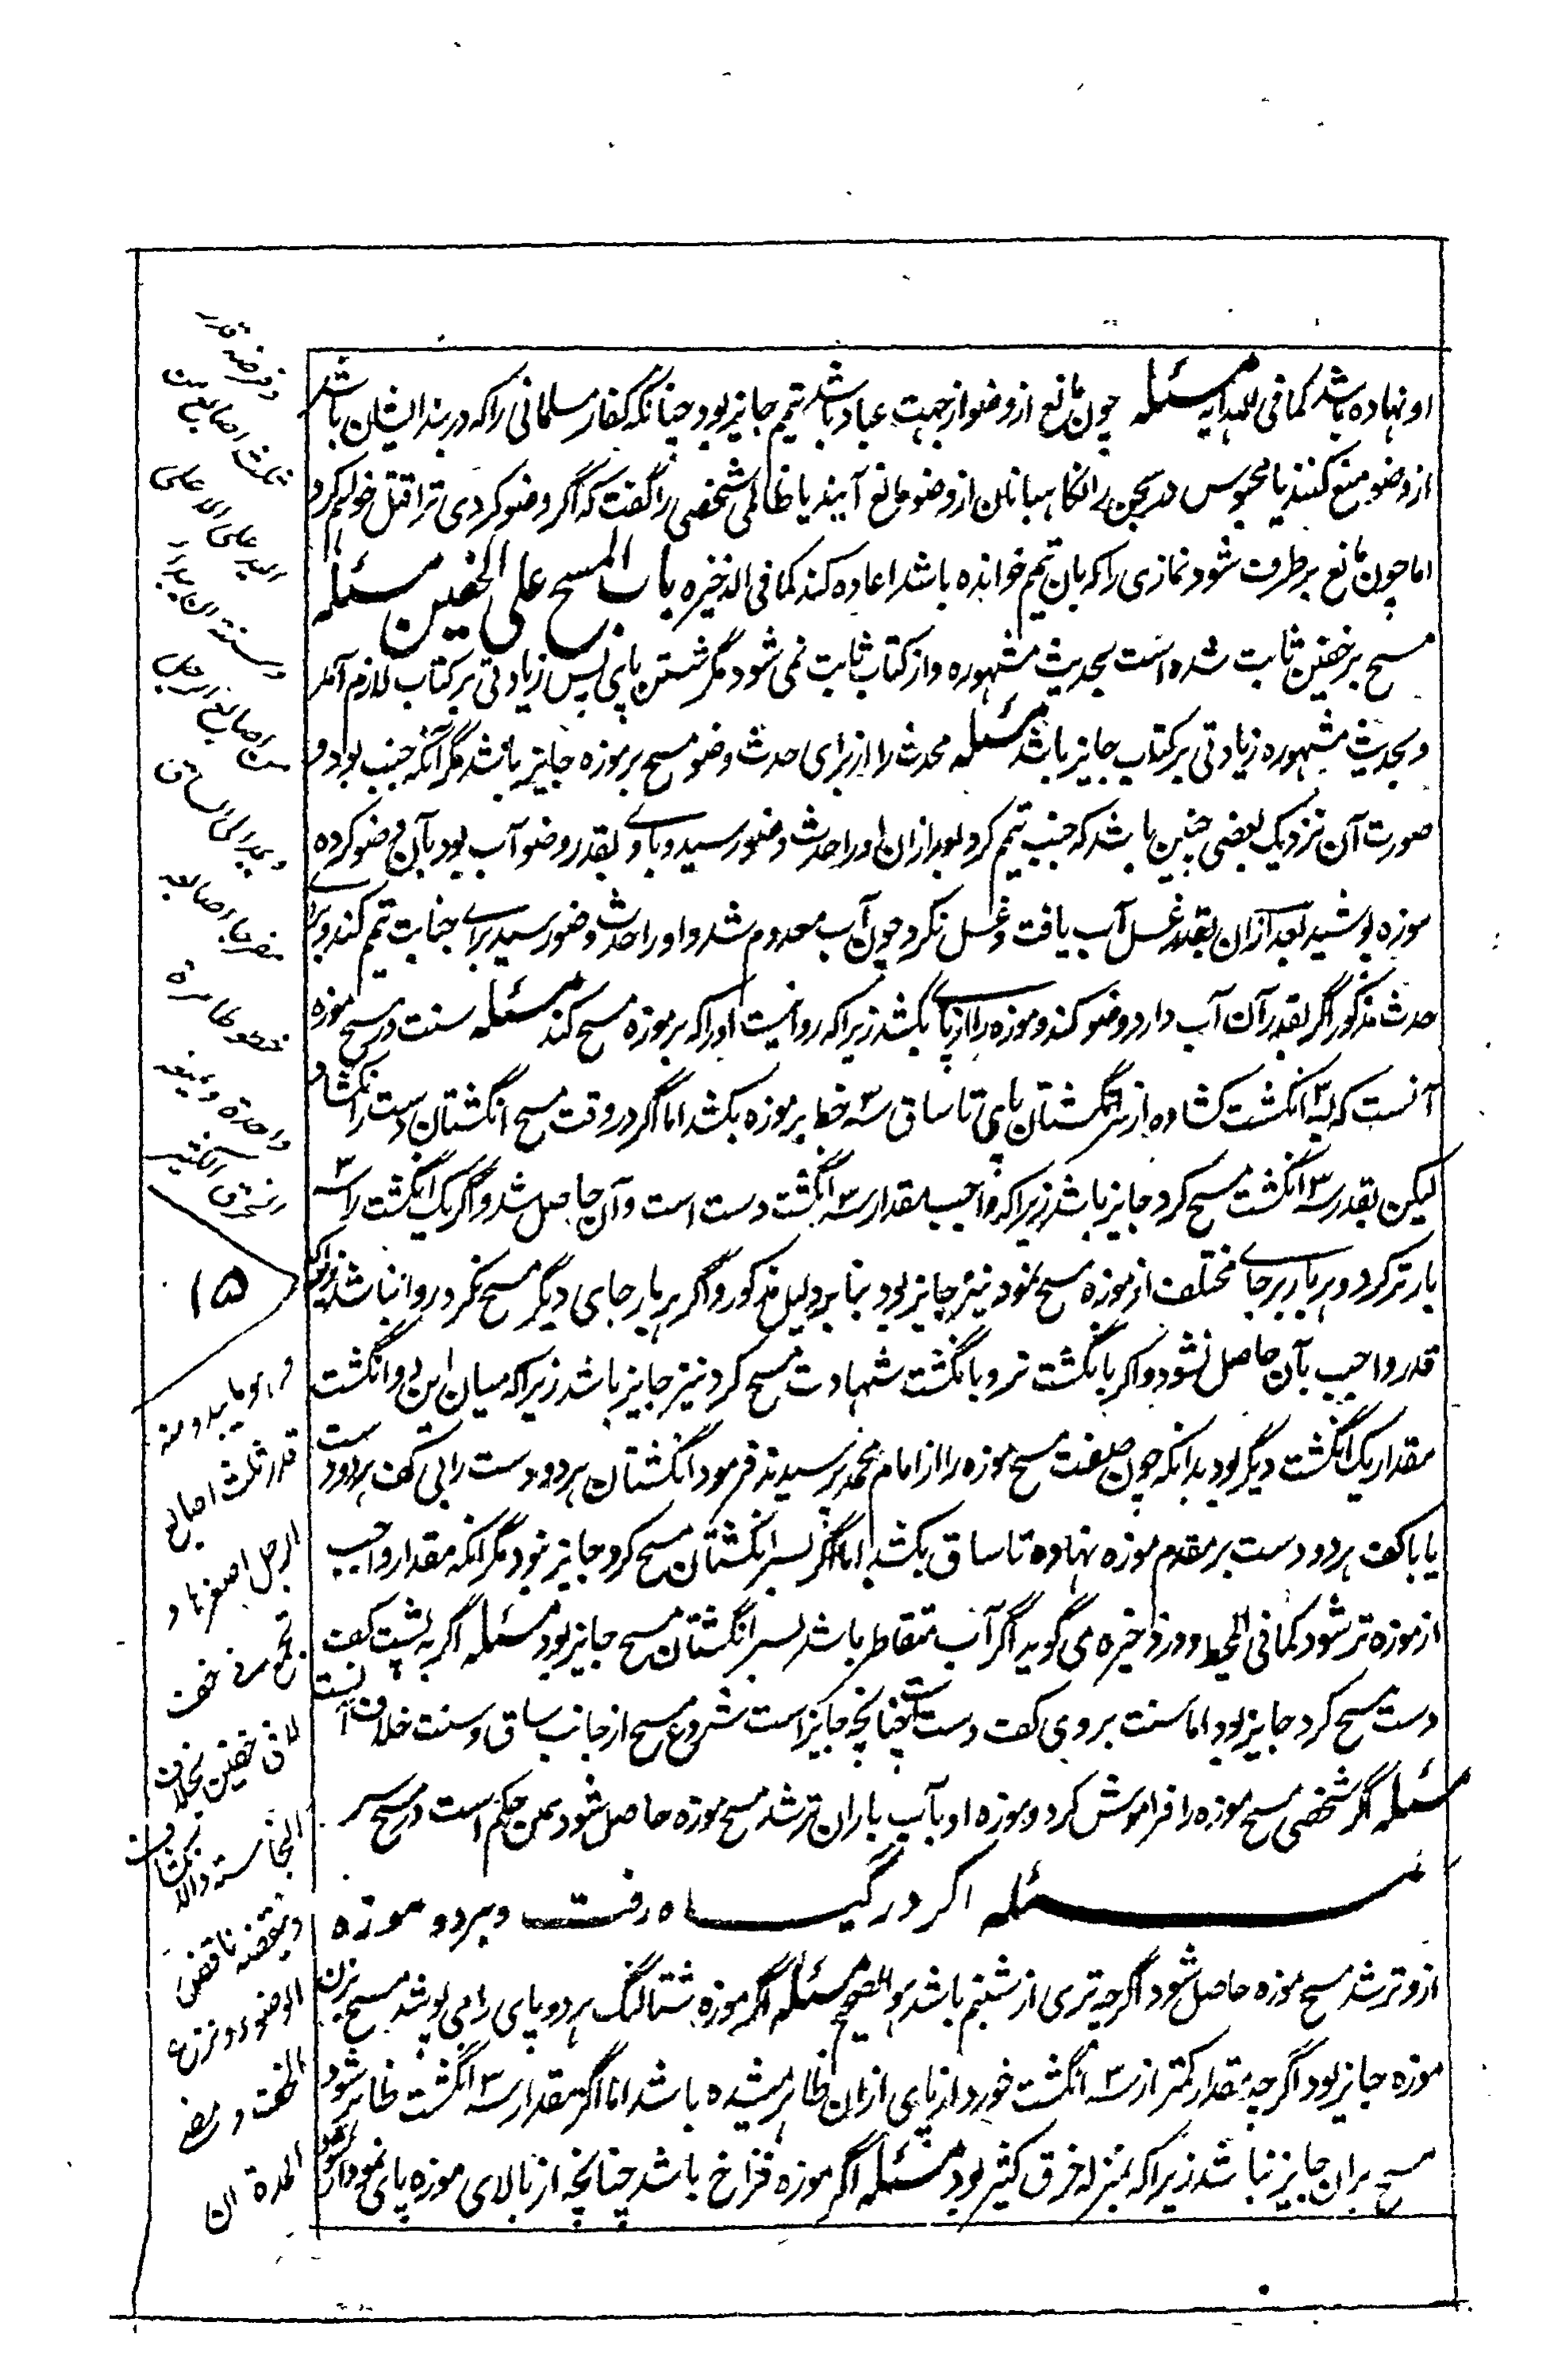 او نهاده باشد کما فی الهدایه مسئله چون مانع از وضو از جهت عباد باشد تیمم جایز بود چنانکه کفار مسلمانی را که در بند ایشان باشد
از وضو منع کنند یا محبوس در سجن را نگاهبانان از وضو مانع آیند یا ظالمی شخصی را گفت که اگر وضو کردی ترا قتل خواهم کرد
اما چون مانع برطرف شود نمازی را که بان تیمم خوانده باشد اعاده کند کما فی الذخیره باب المسح علی الخفین مسئله
مسح بر خفین ثابت شده است بحدیث مشهوره و از کتاب ثابت نمی شود مگر شستن پای پس زیادتی بر کتاب لازم آمد
و بحدیث مشهوره زیادتی بر کتاب جایز باشد مسئله محدث را از برای حدث وضو مسح بر موزه جایز باشد مگر آنکه جنب بود و
صورت آن نزدیک بعضی چنین باشد که جنب تیمم کرد بعد ازان او را حدث وضو رسید و باوی بقدر وضو آب بود بآن وضو کرده
موزه پوشید بعد ازان بقدر غسل آب یافت و غسل نکرد چون آب معدوم شد و او را حدث وضو رسید برای جنابت تیمم کند و برای
حدث مذکور اگر بقدر آن آب دارد وضو کند و موزه را از پای بکشد زیرا که روا نیست او را که بر موزه مسح کند مسئله سنت در مسح موزه
آنست که بسه ۳ انگشت کشاده از سر انگشتان پای تا ساق سه ۳ خط بر موزه بکشد اما اگر در وقت مسح انگشتان دست را نکشاد
لیکن بقدر سه ۳ انگشت مسح کرد جایز باشد زیرا که واجب مقدار سه ۳ انگشت دست است و آن حاصل شد و اگر یک انگشت را سه ۳
بار تر کرد و هر بار بر جای مختلف از موزه مسح نمود نیز جایز بود بنابر دلیل مذکور و اگر هر بار جای دیگر مسح نکرد روا نباشد زیراکه
قدر واجب بآن حاصل نشود و اگر بانگشت نر و بانگشت شهادت مسح کرد نیز جایز باشد زیرا که میان این دو انگشت
مقدار یک انگشت دیگر بود بدانکه چون صفت مسح موزه را از امام محمد پرسیدند فرمود انگشتان هر دو دست را بی کف هر دو دست
یا با کف هر دو دست بر مقدم موزه نهاده تا ساق بکشد اما اگر بسر انگشتان مسح کرد جایز نبود مگر آنکه مقدار واجب
از موزه تر شود کما فی المحیط و در ذخیره می گوید اگر آب متقاطر باشد بسر انگشتان مسح جایز بود مسئله اگر به پشت کف
دست مسح کرد جایز بود اما سنت بروی کف دست است چنانچه جایز است شروع مسح از جانب ساق و سنت خلاف آنست
مسئله اگر شخصی مسح موزه را فراموش کرد و موزه او بآب باران تر شد مسح موزه حاصل شود همین حکم است در مسح سر
مسئله اکر در گیاه رفت و هر دو موزه
ازو تر شد مسح موزه حاصل شود اگرچه تری از شبنم باشد هو الصحیح مسئله اگر موزه شتالنگ هر دو پای را می پوشد مسح برین
موزه جایز بود اگرچه بمقدار کمتر از سه ۳ انگشت خورد از پای ازان ظاهر میشده باشد اما اگر مقدار سه ۳ انگشت ظاهر شود
مسح بران جایز نباشد زیرا که بمنزله خرق کثیر بود مسئله اگر موزه فراخ باشد چنانچه از بالای موزه پای نمودار شود
وفرضه قدر
ثلث اصابع من
الید علی الاعلی
وسنته ان یبدا
من اصابع الرجل
ویمد الی الساق
مفرجا اصابعه
خطوطا مرة
واحدة ویمنعه
الخرق الکثیر
۱۵
وهو ما یبدو منه
قدر ثلث اصابع
الرجل اصغرها و
یجمع فی خف
لا فی خفین بخلاف
النجاسة والانکشاف
وینقضه ناقض
الوضوء ونزع
الخف ومضی
المدة ان